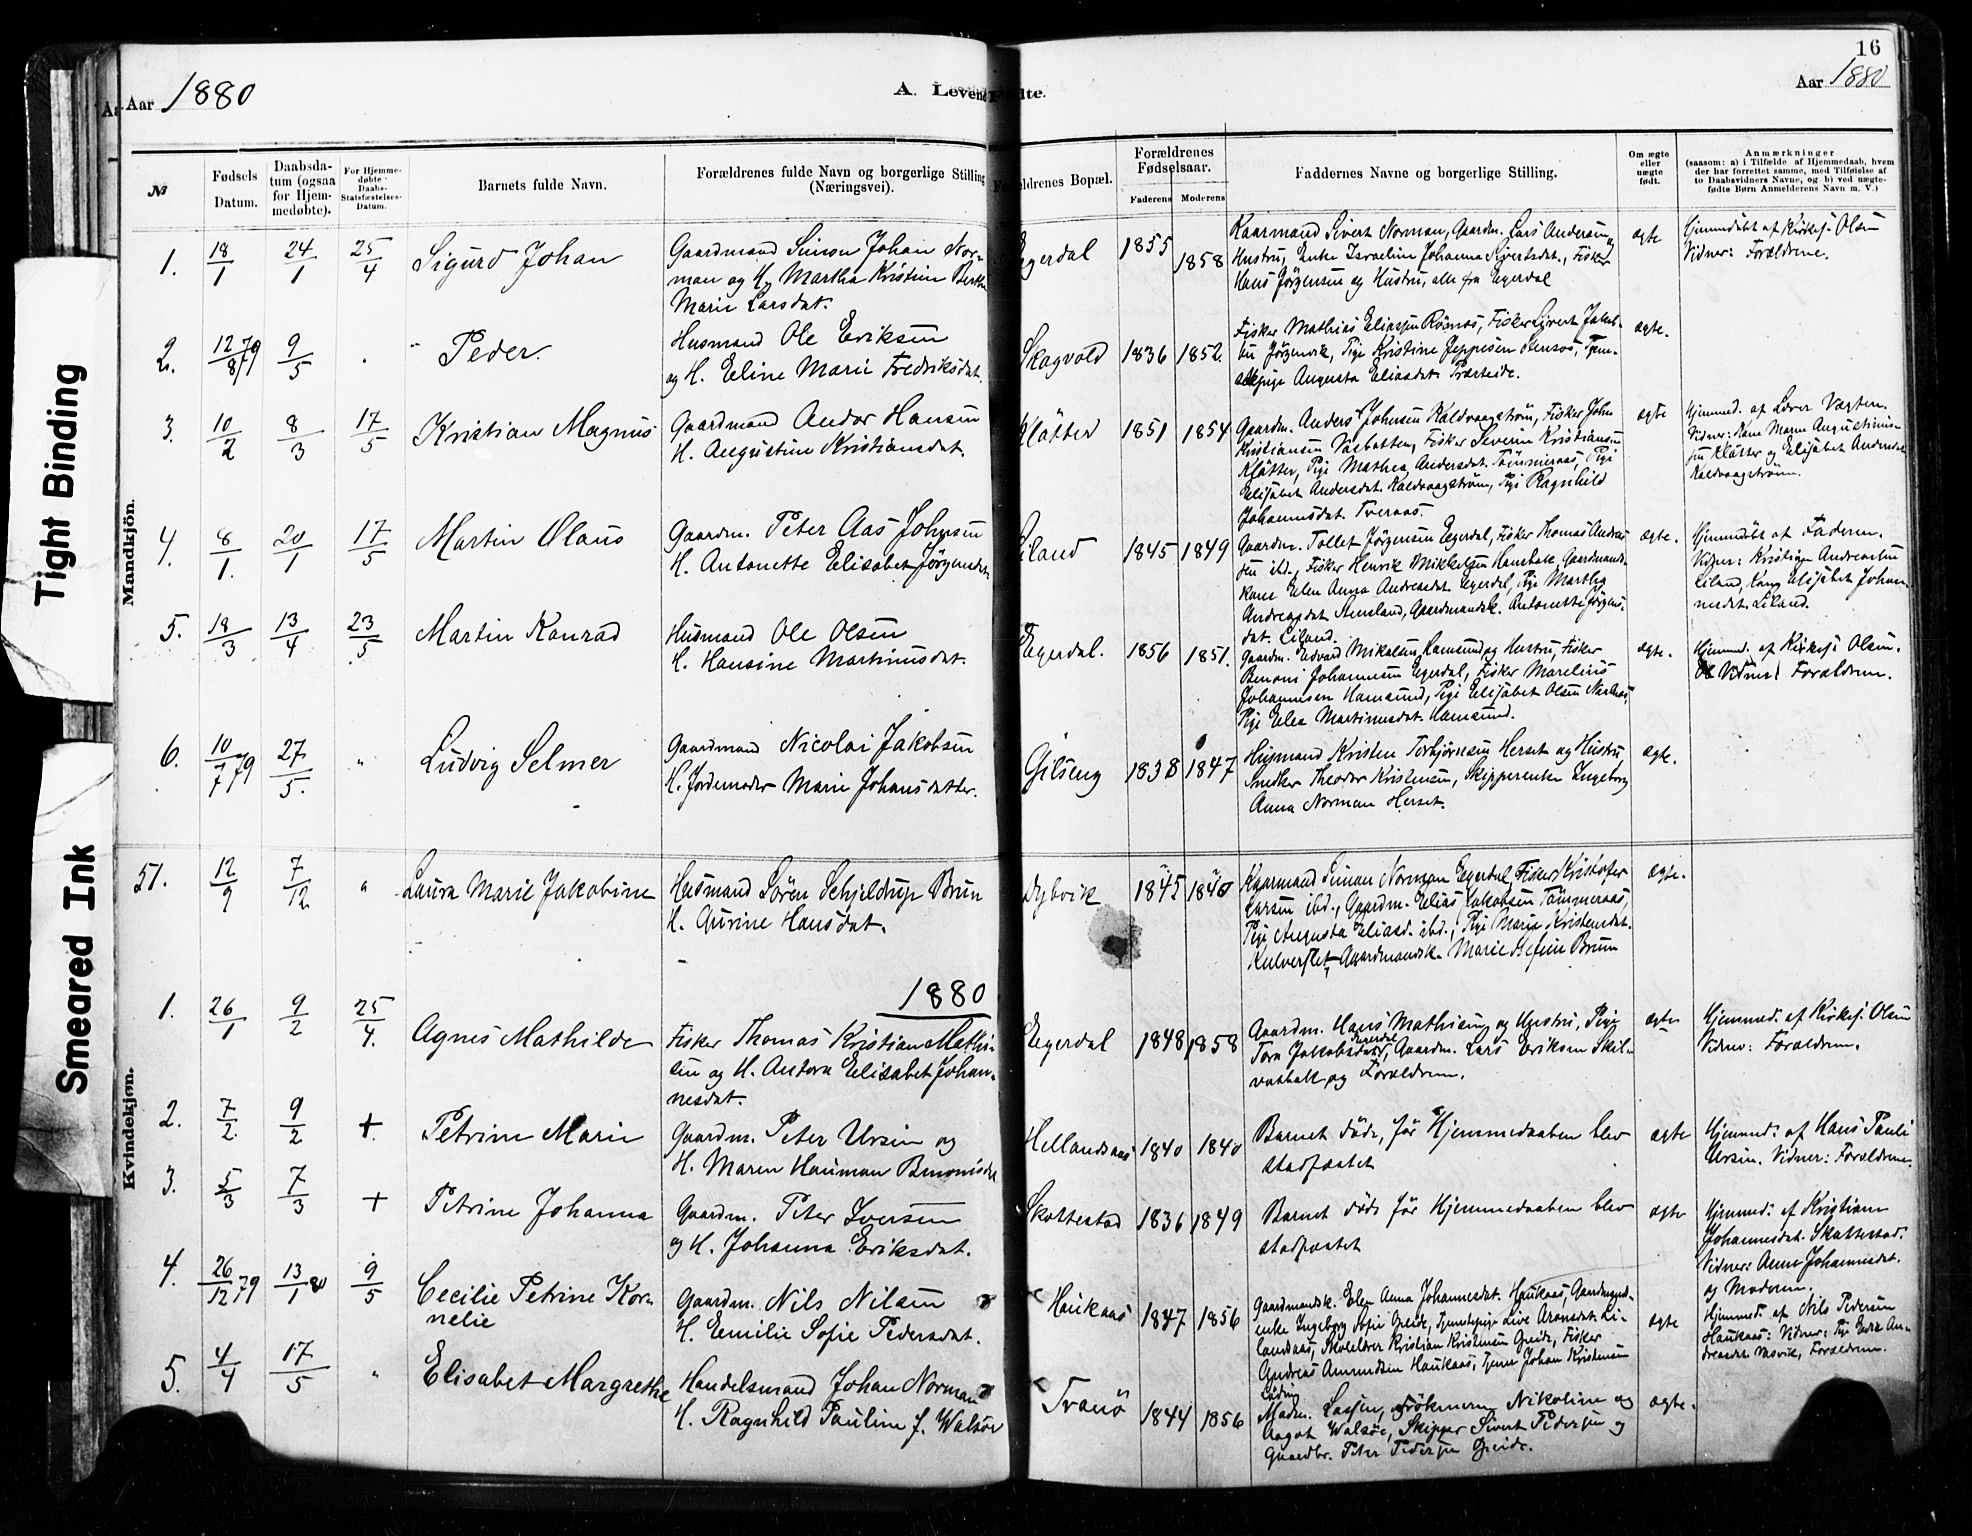 16
Aar 1880
A. Levende Fødte.
Aar 1880
№
Fødsels Datum.
Daabsda-
tum (ogsaa
for Hjem-
medøbte).
For Hjemme-
døbte
Daabs-
Stadfæstelses-
Datum.
Barnets fulde Navn.
Forældrenes fulde Navn og borgerlige Stilling
(Næringsvei).
Forældrenes Bopæl.
Forældrenes
Fødselsaar.
Faderens
Moderens
Faddernes Navne og borgerlige Stilling.
Om ægte
eller
uægte
født.
Anmærkninger
(saasom: a) i Tilfælde af Hjemmedaab, hvem
der har forrettet samme, med Tilføielse af
to Daabsvidners Navne, og b) ved uægte-
fødte Børn Anmelderens Navn m. V.)
Mandkjön.
1. 18/1 24/1 25/4 Sigurd Johan
Gaardmand Simon Johan Nor-
man og H. Martha Kristine Berthe
Marie Larsdat.
Egerdal 1855 1858
Kaarmand Sivert Norman, Gaardm. Lars Andersen og
Hustru, Enke Israeline Johanna Sivertsdat., Fisker
Hans Jörgensen og Hustru, alle fra Egerdal
ægte
Hjemmedöbt af Kirkesj. Olsen
Vidner: Forældrene.
2. 12/8 79 9/5 Peder.
Husmand Ole Eriksen
og H. Eline Marie Fredriksdat.
Skogvold 1836 1852.
Fisker Mathias Eliassen Rörnæs, Fisker Sivert Jakob-
sen Jörgenvik, Pige Kristine Jeppesen Stensös, Tjene-
stepige Augusta Eliasdat. Præsteide.
ægte.
3. 10/2 8/3 17/5 Kristian Magnus
Gaardmand Andor Hansen
H. Augustine Kristiansdat.
Klötter 1851 1854
Gaardm. Anders Johnsen Kaldvaagström, Fisker John
Kristiansen Næsbotten, Fisker Severin Kristiansen
Klötter, Pige Mathea Andersdat. Tömmeraas, Pige
Elisabet Andersdat. Kaldvaagström, Pige Ragnhild
Johannesdat. Tveraas.
ægte
Hjemmed. af Lærer Vægten.
Vidner: Kone Maren Augustinus-
sen Klötter og Elisabet Andersdat.
Kaldvaagström.
4. 8/1. 20/1 17/5 Martin Olaus
Gaardm. Peter Aas Johnsen
H. Antonette Elisabet Jörgensdat.
Liland 1845 1849
Gaardm. Tollef Jörgensen Egerdal, Fisker Thomas Andrea-
sen ibd., Fisker Henrik Mikkelsen Hansbak, Gaardmands-
kone Elen Anna Andreasdat. Egerdal, Pige Marthe
Andreasdat. Stensland, Gaardmandsk. Antonette Jörgens-
dat. Liland.
ægte.
Hjemmedöbt af Faderen.
Vidner: Kristian Andreassen
Liland, Kone Elisabet Johan-
nesdat. Liland.
5. 18/3 13/4 23/5 Martin Konrad
Husmand Ole Olsen
H. Hansine Martinusdat.
Egerdal. 1856 1851.
Gaardm. Edvard Mikalsen Hamsund og Hustru, Fisker
Benoni Johannesen Egerdal, Fisker Marelius
Johannesen Hamsund, Pige Elisabet Olsen Næsnes,
Pige Elea Martinusdat. Hamsund.
ægte.
Hjemmed. af Kirkesj. Olsen.
Vidner: Forældrene.
6. 10/7 79 27/5. " Ludvig Selmer
Gaardmand Nicolai Jakobsen
H. Jordemoder Marie Johansdatter.
Gilseng 1838 1847
Husmand Kristen Torbjörnsen Herset og Hustru,
Snedker Theodor Kristensen, Skipperenke Ingeborg
Anna Norman Herset.
ægte.
51. 12/9 7/12 " Laura Marie Jakobine
Husmand Sören Schjeldrup Brun
H. Gurine Hansdat.
Dybvik 1845 1840
Kaarmand Simon Norman Egerdal, Fisker Kristofer
Larsen ibd., Gaardm. Elias Jakobsen Tömmeraas,
Pige Augusta Eliasd. ibd., Pige Marie Kristensdat.
Kulverflet, Gaardmandsk. Marie Brun
ægte.
Kvindekjøn.
1880
1. 26/1 9/2 25/4. Agnes Mathilde
Fisker Thomas Kristian Mathi-
sen og H. Antora Elisabet Johan-
nesdat.
Egerdal 1848 1858
Gaardm. Hans Mathisen og Hustru, Pige
Tora Jakobsdat. Egerdal, Gaardm. Lars Eriksen Skil-
vasbak og Forældrene.
ægte
Hjemmed. af Kirkesj. Olsen
Vidner: Forældrene.
2. 7/2 9/2 + Petrine Marie
Gaardm. Peter Ursin og
H. Maren Hauman Benonisdat.
Hellandsaas 1840 1840
Barnet döde, för Hjemmedaaben blev
stadfæstet
ægte
Hjemmed. af Hans Pauli
Ursin. Vidner: Forældrene.
3. 5/3 7/3 + Petrine Johanna
Gaardm. Peter Iversen
og H. Johanna Eriksdat.
Skottestad 1836 1849
Barnet döde för Hjemmedaaben blev
stadfæstet
ægte
Hjemmed. af Kristiane
Johannesdat. Skattestad.
Vidner: Anne Johannesdat.
og Moderen.
4. 26/12 79 13/1 80 9/5 Cecilie Petrine Kor-
nelie
Gaardm. Nils Nilsen
H. Emilie Sofie Pedersdat.
Haukaas 1847 1856
Gaardmandsk. Elen Anna Johannesdat. Haukaas, Gaardmands-
enke Ingeborg Sofie Greide, Tjenestepige Live Aronsdat. Li-
landsaas, Skolelærer Kristian Kristensen Greide, Fisker
Andreas Amundsen Haukaas, Tjener Johan Kristensen
Löding
ægte
Hjemmed. af Nils Pedersen
Haukaas: Vidner: Pige An-
dreasdat. Næsvik, Forældrene.
5. 4/4 17/5 " Elisabet Margrethe
Handelsmand Johan Norman
H. Ragnhild Pauline f. Walsöe
Tranö 1844 1856
Madm. Lassen, Frökenerne Nikoline og
Aagot Walsöe, Skipper Sivert Pedersen og
Gaardbr. Peter Pedersen Greide.
ægte.
Tight Binding
Smeared Ink